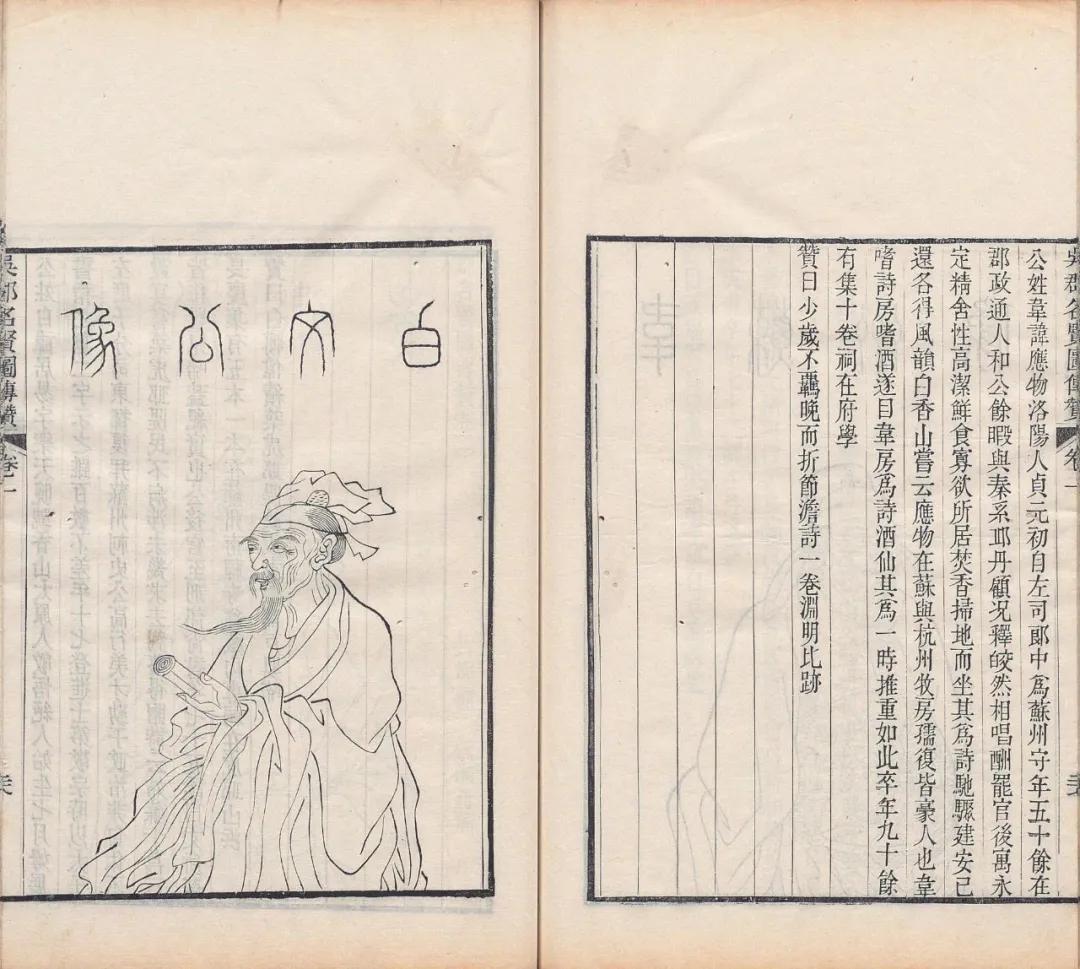 吳郡名賢圖傳贊
卷一
公姓韋諱應物洛陽人貞元初自左司郎中爲蘇州守年五十餘在
郡政通人和公餘暇與秦系邱丹顧况釋皎然相唱酬罷官後寓永
定精舍性高潔鮮食寡欲所居焚香掃地而坐其爲詩馳驟建安已
還各得風韻白香山嘗云應物在蘇與杭州牧房孺復皆豪人也韋
嗜詩房嗜酒遂目韋房爲詩酒仙其爲一時推重如此卒年九十餘
有集十卷祠在府學
贊曰少歲不羈晚而折節澹詩一卷淵明比跡
白文公像
吳郡名賢圖傳贊
卷一